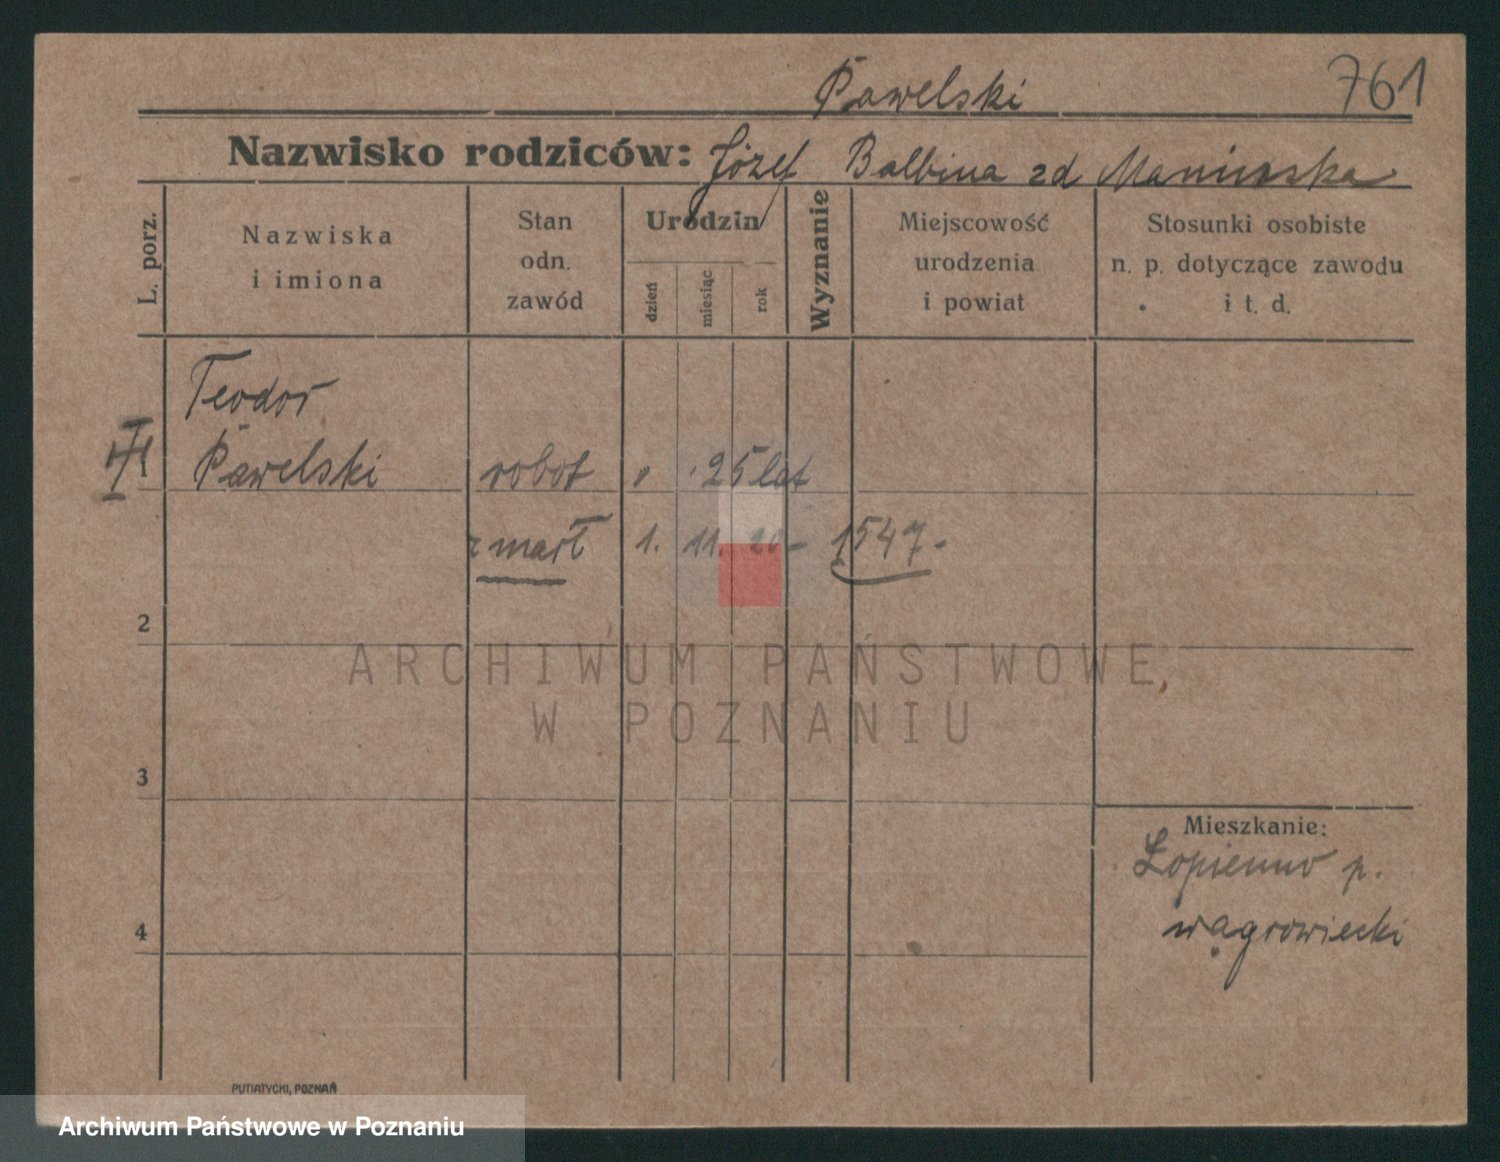 Pawelski 761
Nazwisko rodziców: Józef Balbina zd
L. porz.
Nazwiska
i imiona
Stan
odn.
zawód
Urodzin
dzień
miesiąc
rok
Wyznanie
Miejscowość
urodzenia
i powiat
Stosunki osobiste
n. p. dotyczące zawodu
i t. d.
Teodor
1 Pawelski robot " 25 lat
zmarł 1. 11. 20 - 1547 -
2
3
4
Mieszkanie:
Łopienno p.
wągrowiecki
ARCHIWUM PAŃSTWOWE
W POZNANIU
PUTIATYCKI, POZNAŃ
Archiwum Państwowe w Poznaniu